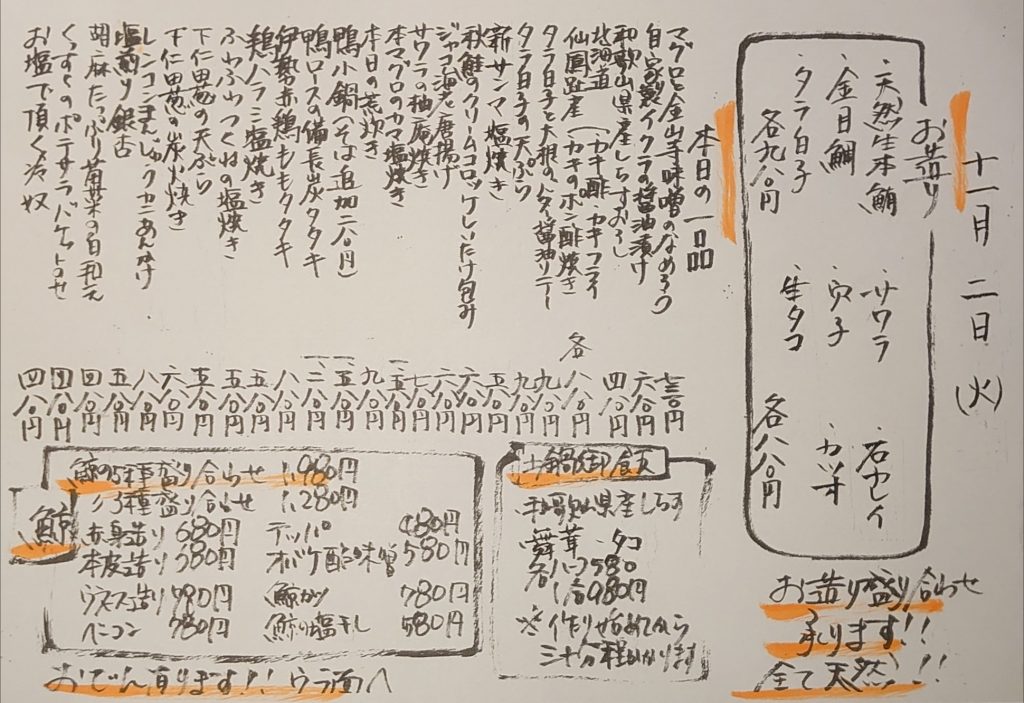 十一月 二日 (火)
お造り
・天然生本鮪
・金目鯛
・タラ白子
各九八〇円
・サワラ
・穴子
・生タコ
・石セイ
・カツオ
各八八〇円
お造り盛り合わせ
承ります!!
全て天然!!
本日の一品
マグロと金山寺味噌のなめろう 七三〇円
自家製イクラの醤油漬け 六八〇円
和歌山県産しらすおろし 四八〇円
北海道 (・カキ酢・カキフライ
仙鳳趾産 (・カキのポン酢焼き 各八八〇円
タラ白子と大根のバター醤油ソテー 九八〇円
タラ白子の天ぷら 九八〇円
新サンマ塩焼き
秋鮭のクリームコロッケしいたけ包み
ジャコ海老唐揚げ
サワラの柚庵焼き
本マグロのカマ塩焼き
本日の荒炊き
鴨小鍋(そば追加二八〇円)
鴨ロースの備長炭タタキ
伊勢赤鶏ももタタキ
鶏ハラミ塩焼き
ふわふわつくねの塩焼き
下仁田葱の天ぷら
下仁田葱の炭火焼き
レンコンまんじゅうカニあんかけ
塩煎り銀杏
胡麻たっぷり青菜の白和え
くんすくのポテサラバケット乗せ
お塩で頂く冷奴
土鍋御飯
・和歌山県産しらす
・舞茸 ・タコ
各ハーフ580
1合980円
※作り始めてから
三十分程かかります
鯨
鯨の5種盛り合わせ 1,980円
〃3種盛り合せ 1,280円
赤身造り 680円
本皮造り 580円
ウネス造り 780円
ベーコン 780円
テッパ 480円
オバケ酢味噌 580円
鯨カツ 780円
鯨の塩干し 580円
おでん有ります!!ウラ面へ